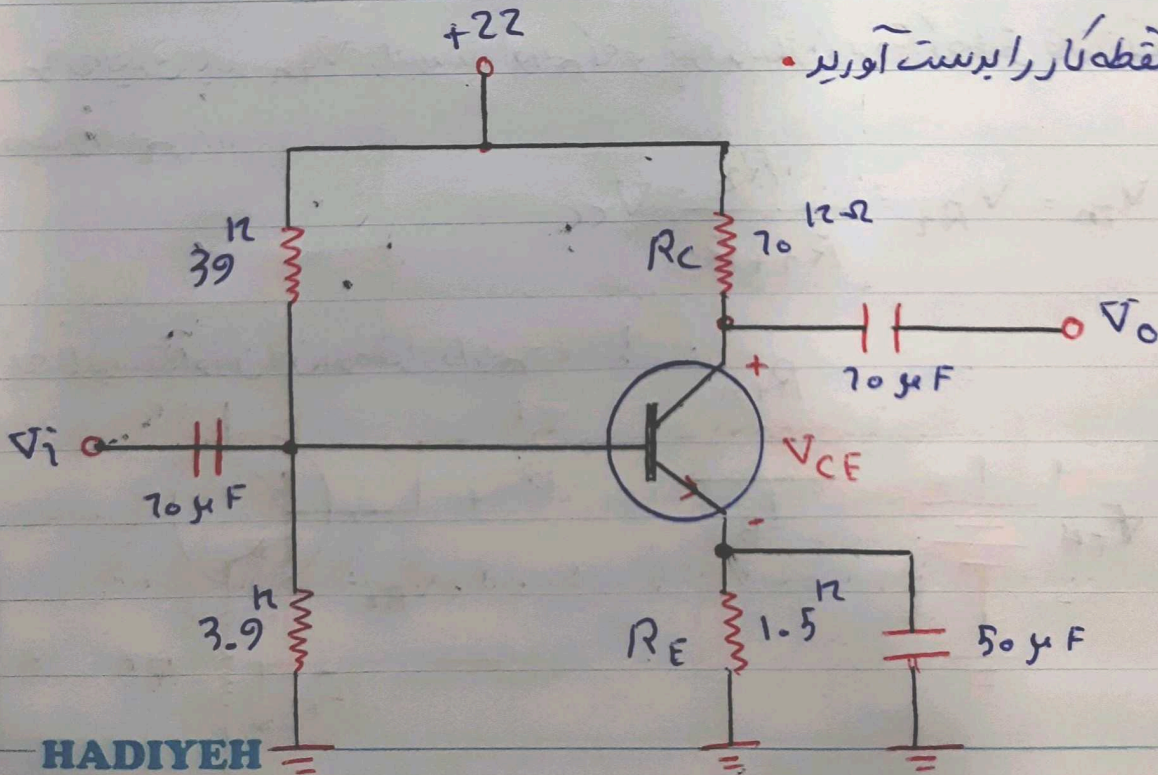 نقطه کار را بدست آورید.
+22
39 K
Rc 10 KΩ
Vo
10 μF
+
Vi
10 μF
VCE
-
3.9 K
RE 1.5 K
50 μF
HADIYEH